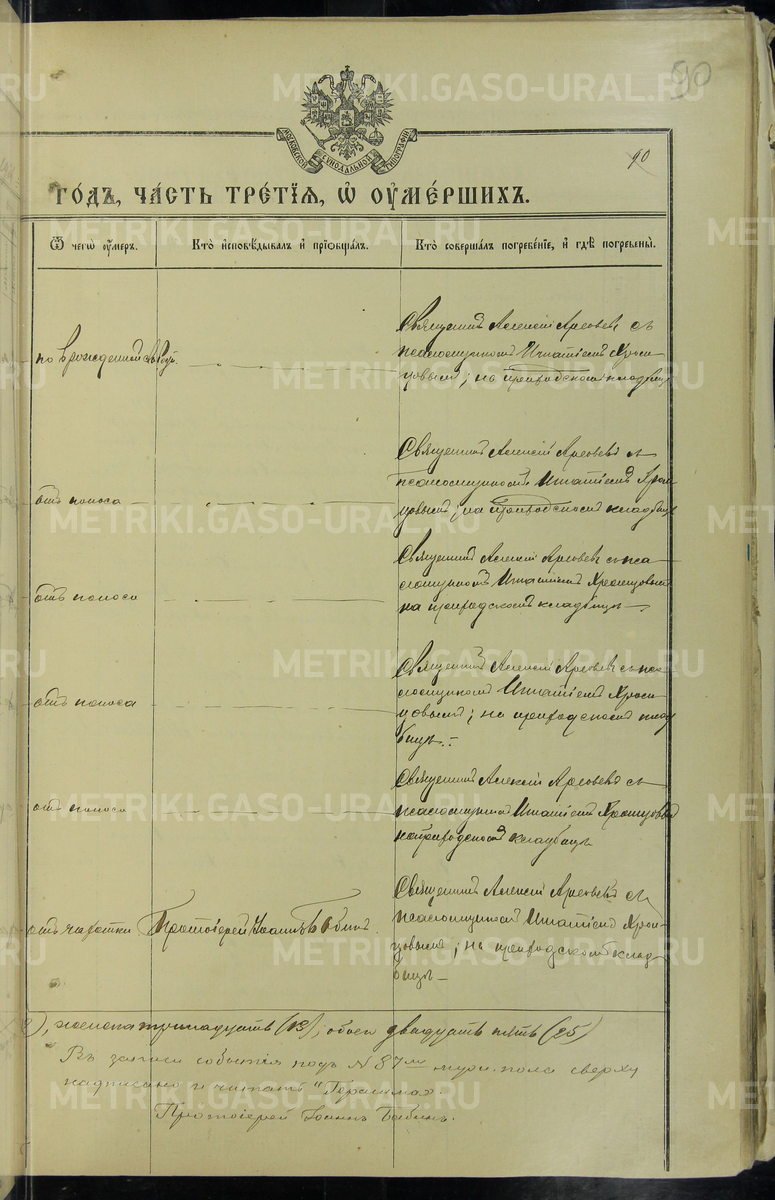 90
МОСКОВСКОЙ СУНОДАЛЬНОЙ ТИПОГРАФІИ
90
ГОДЪ, ЧАСТЬ ТРЕТІЯ, Ѡ ОУМЕРШИХЪ.
Ѿ чегѡ оумеръ.
Кто исповѣдывалъ и пріобщалъ.
Кто совершалъ погребеніе, и гдѣ погребены.
Священникъ Алексій Арефьевъ съ
псаломщикомъ Игнатіемъ Хром-
цовымъ; на приходскомъ кладбищѣ
отъ поноса
Священникъ Алексій Арефьевъ съ
псаломщикомъ Игнатіемъ Хром-
цовымъ; на приходскомъ кладбищѣ
отъ поноса
Священникъ Алексій Арефьевъ съ пса-
ломщикомъ Игнатіемъ Хромцовымъ
на приходскомъ кладбищѣ
отъ поноса
Священникъ Алексій Арефьевъ съ пса-
ломщикомъ Игнатіемъ Хром-
цовымъ; на приходскомъ клад-
бищѣ
отъ поноса
Священникъ Алексій Арефьевъ съ
псаломщикомъ Игнатіемъ Хромцовымъ
на приходскомъ кладбищѣ
отъ чахотки
Протоіерей Іоаннъ Бабинъ
Священникъ Алексій Арефьевъ съ
псаломщикомъ Игнатіемъ Хром-
цовымъ; на приходскомъ клад-
бищѣ
женска тринадцать (13), обоего двадцать пять (25)
Въ записи событія подъ №87мъ муж. пола сверху
надписано и читать "Герасима".
Протоіерей Іоаннъ Бабинъ.
METRIKI.GASO-URAL.RU